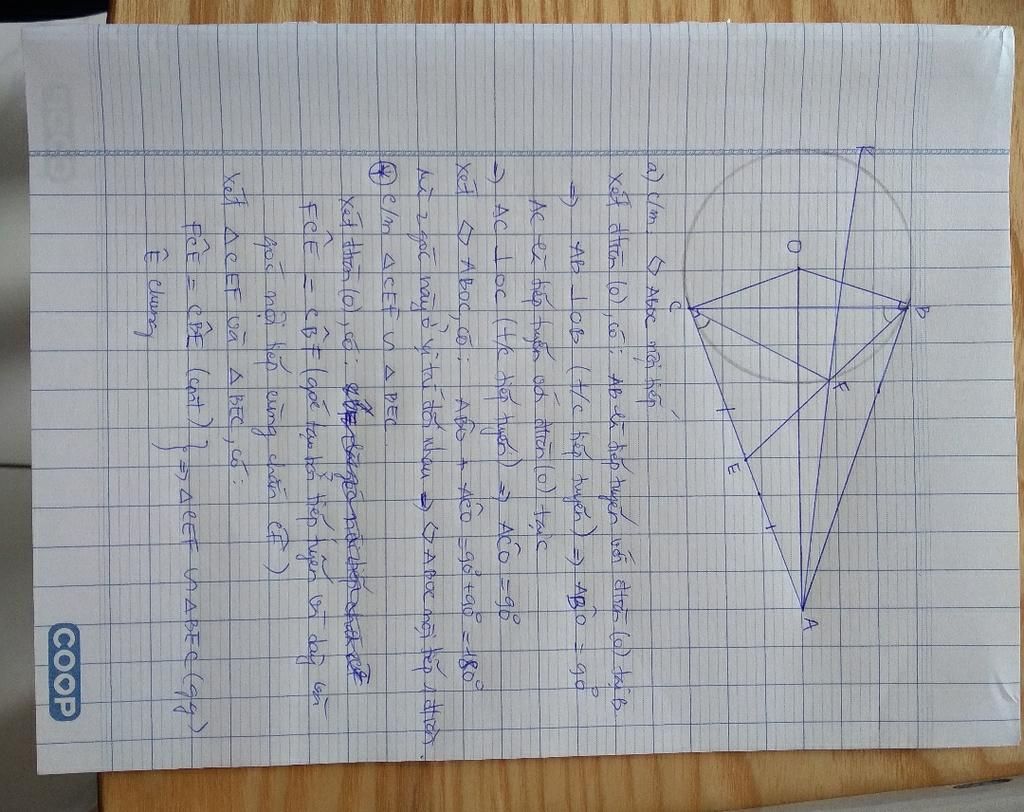 K
O
B
C
F
E
A
a) C/m ◇ ABOC nội tiếp
Xét đtròn (O), có: AB là tiếp tuyến với đtròn (O) tại B
=> AB ⊥ OB (t/c tiếp tuyến) => ABO = 90°
AC là tiếp tuyến với đtròn (O) tại C
=> AC ⊥ OC (t/c tiếp tuyến) => ACO = 90°
Xét ◇ ABOC, có: ABO + ACO = 90° + 90° = 180°
Mà 2 góc này ở vị trí đối nhau => ◇ ABOC nội tiếp 1 đtròn.
* C/m △ CEF ∽ △ BEC
Xét đtròn (O), có:
FCE = CBF (góc tạo bởi tiếp tuyến và dây và
góc nội tiếp cùng chắn CF)
Xét △ CEF và △ BEC, có:
FCE = CBE (cmt) } => △CEF ∽ △BEC (gg)
E chung
COOP